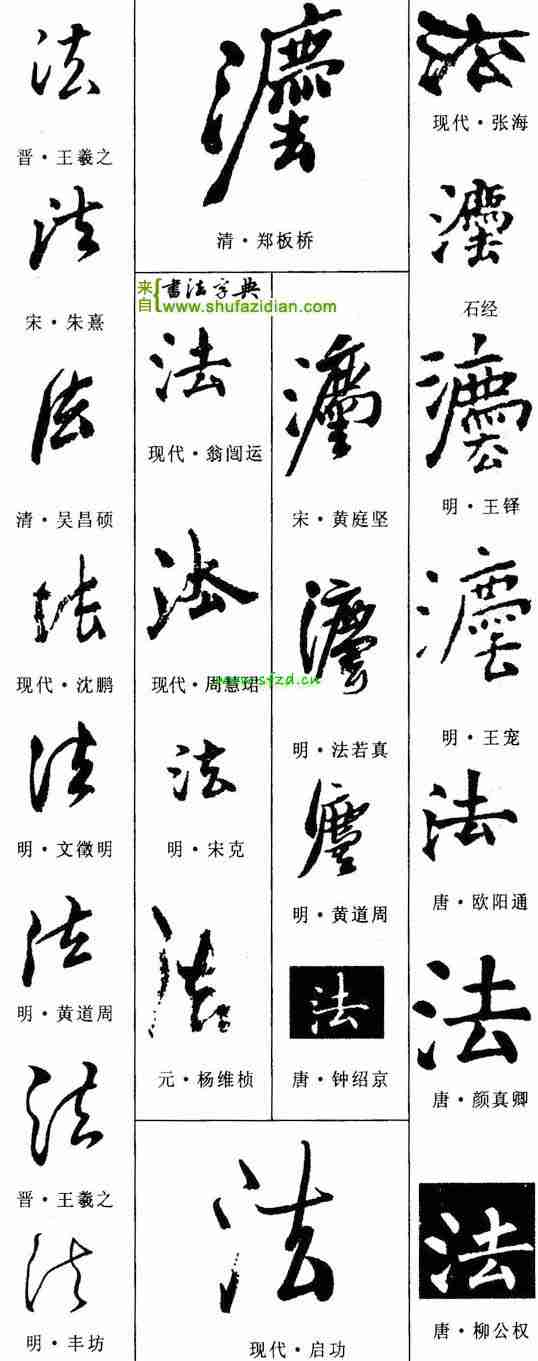 法
晋·王羲之
法
宋·朱熹
法
清·吴昌硕
法
现代·沈鹏
法
明·文徵明
法
明·黄道周
法
晋·王羲之
法
明·丰坊
灋
清·郑板桥
来自{書法字典
www.shufazidian.com
法
现代·翁闿运
法
现代·周慧珺
www.sfzd.cn
法
明·宋克
法
元·杨维桢
灋
宋·黄庭坚
灋
明·法若真
灋
明·黄道周
法
唐·钟绍京
法
现代·启功
法
现代·张海
灋
石经
灋
明·王铎
灋
明·王宠
法
唐·欧阳通
法
唐·颜真卿
法
唐·柳公权